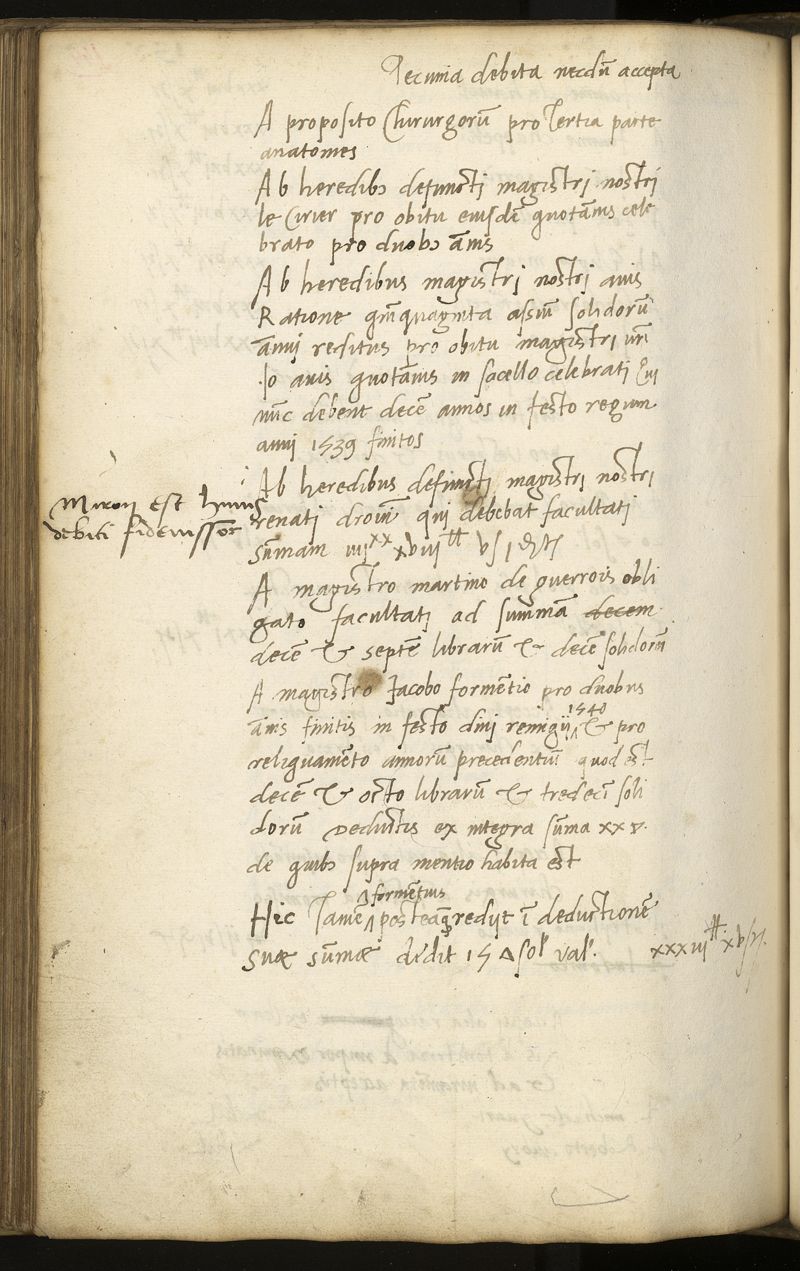 Pecunia debita necdū accepta
A proposito Chirurgorū pro tertia parte
anatomes
Ab heredibꝫ defuncti magistri nostri
le Cirier pro obitu eiusdē quotānis cele
brato pro duobꝫ ānis
Ab heredibus magistri nostri avis
Ratione quinquaginta assiū solidorū
ānui reditus pro obitu magistri nri
Jo avis quotānis in sacello celebrati Qui
nūc debent decē annos in festo regum
anni 1539 finitos
Ab heredibus defuncti magistri nostri
renati droin qui debebat facultati
Miron est huius
debiti fideiussor
sūmam iiijˣˣ xviij ₶
A magistro martino de guerrois obli
gato facultati ad summā decem
decē & septē librarū & decē solidorū
A magistro Jacobo formentio pro duobus
ānis finitis in festo divi remigij 1540 & pro
reliquamēto annorū precedentiū quod est
decē & octo librarū & tredecī soli
dorū deductis ex integra sūma xx v.
de quibꝫ supra mentio habita est
Hic tamē formētius posteaq̄ redijt ī deductionē
suæ sūmæ dedit 15 sol val. xxxvij ₶ xv s